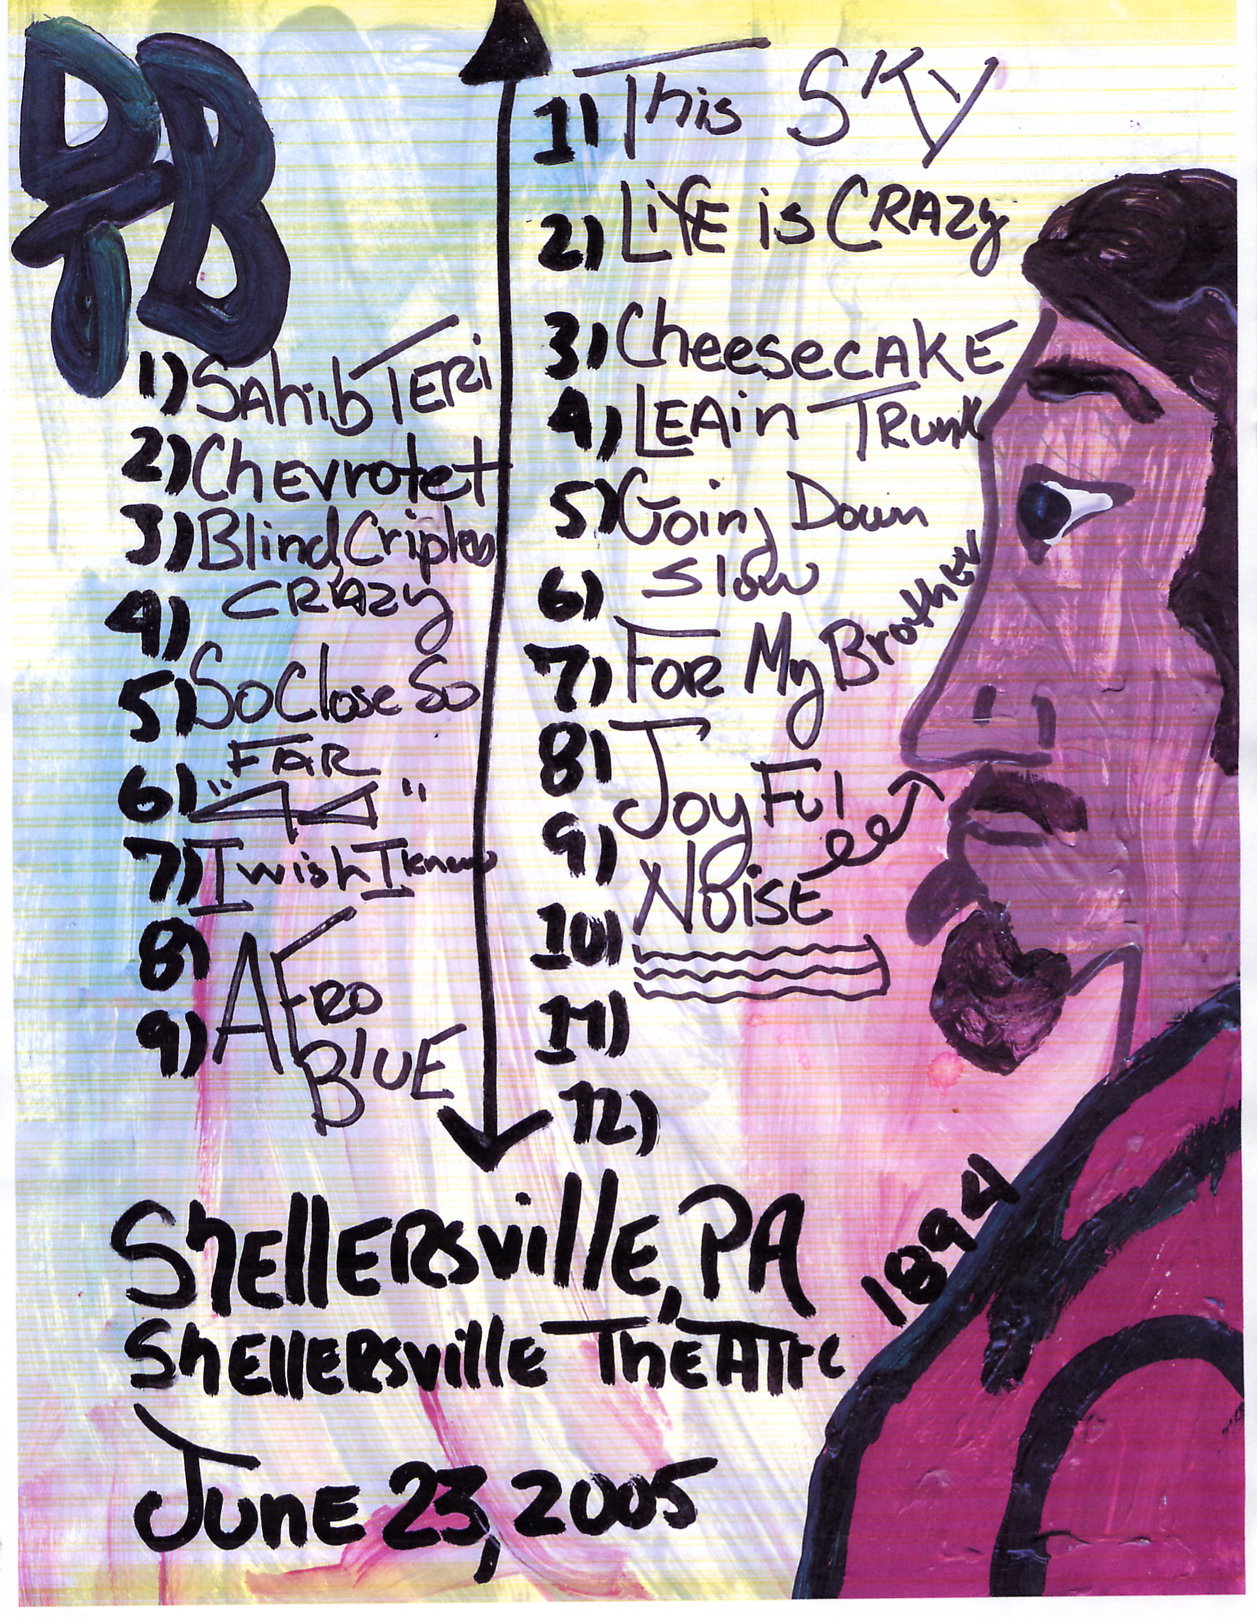 DTB
1) Sahib Teri
2) Chevrolet
3) Blind, Criples
4) CRAZY
5) So Close So
FAR
6) "44"
7) I wish I knew
8) AFRO
9) BLUE
1) This SKY
2) LiFE is CRAZy
3) CheesecAKE
4) LEAin TRunk
5) Going Down
6) Slow
7) FOR My Brother
8) Joy Ful
9) NOISE
10)
11)
12)
1894
ShellERsville, PA
ShellERsville ThEATre
JunE 23, 2005